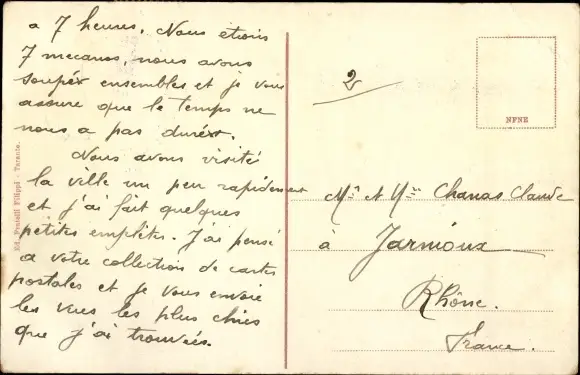 a 7 heures. Nous etions
7 mecanos, nous avons
soupér ensembles et je vous
assure que le temps ne
nous a pas durért.
Nous avons visité
la ville un peu rapidement
et j'ai fait quelques
petites emplètes. J'ai pensé
a votre collection de cartes
postales et je vous envoie
les vues les plus chics
que j'ai trouvées.
Ed. Fratelli Filippi - Taranto.
2
NPNE
Mr et Mme Chanas Claude
à Jarnioux
Rhône.
France.